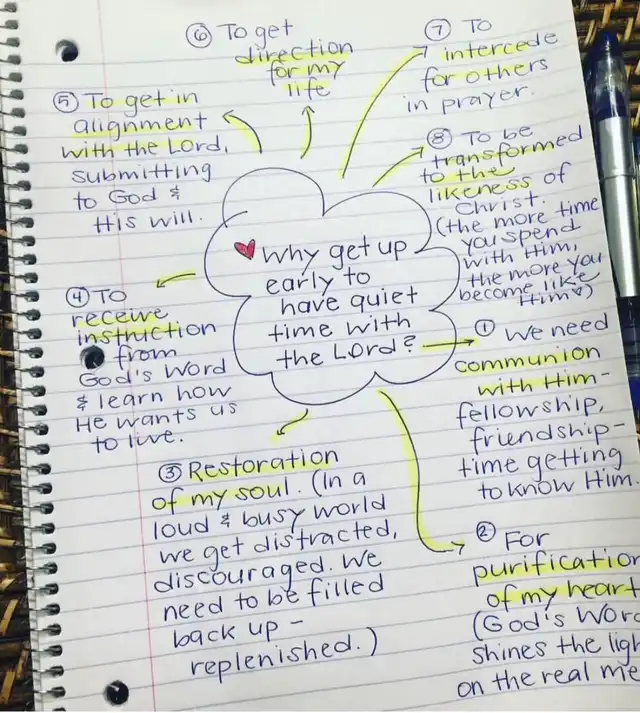 Why get up
early to
have quiet
time with
the LORD?
① We need
communion
with Him-
fellowship,
friendship-
time getting
to know Him.
② For
purification
of my heart
(God's Word
shines the light
on the real me
③ Restoration
of my soul. (In a
loud & busy world
we get distracted,
discouraged. We
need to be filled
back up -
replenished.)
④ To
receive
instruction
from
God's Word
& learn how
He wants us
to live.
⑤ To get in
alignment
with the Lord,
submitting
to God &
His will.
⑥ To get
direction
for my
life
⑦ To
intercede
for others
in prayer.
⑧ To be
transformed
to the
likeness of
Christ.
(the more time
you spend
with Him,
the more you
become like
Him ♡)